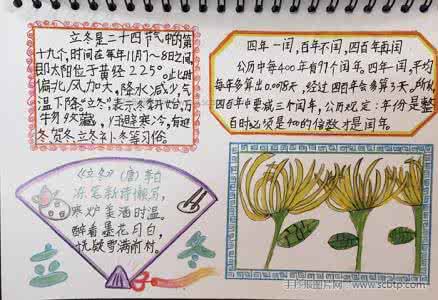 立冬是二十四节气中的第
十九个,时间在每年11月7~8日之间,
即太阳位于黄经225°。此时
偏北,风力加大,降水减少,气
温下降。"立冬"表示冬季开始,万
物归避寒冷,有迎
冬、贺冬、立冬补冬等习俗。
四年一闰,百年不闰,四百年再闰
公历中每400年有97个闰年。四年一闰,平均
每年多算出0.0078天,经过四百年会多算3天。所以
四百年中要减三个闰年,公历规定:年份是整
百时必须是400的倍数才是闰年。
《立冬》(唐)李白
冻笔新诗懒写,
寒炉美酒时温。
醉看墨花月白,
恍疑雪满前村。
立
冬
www.scbtp.com